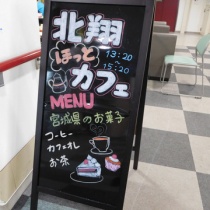 北翔
ほっと
13:20
15:20
カフェ
MENU
宮城県のお菓子
コーヒー
カフェオレ
お茶